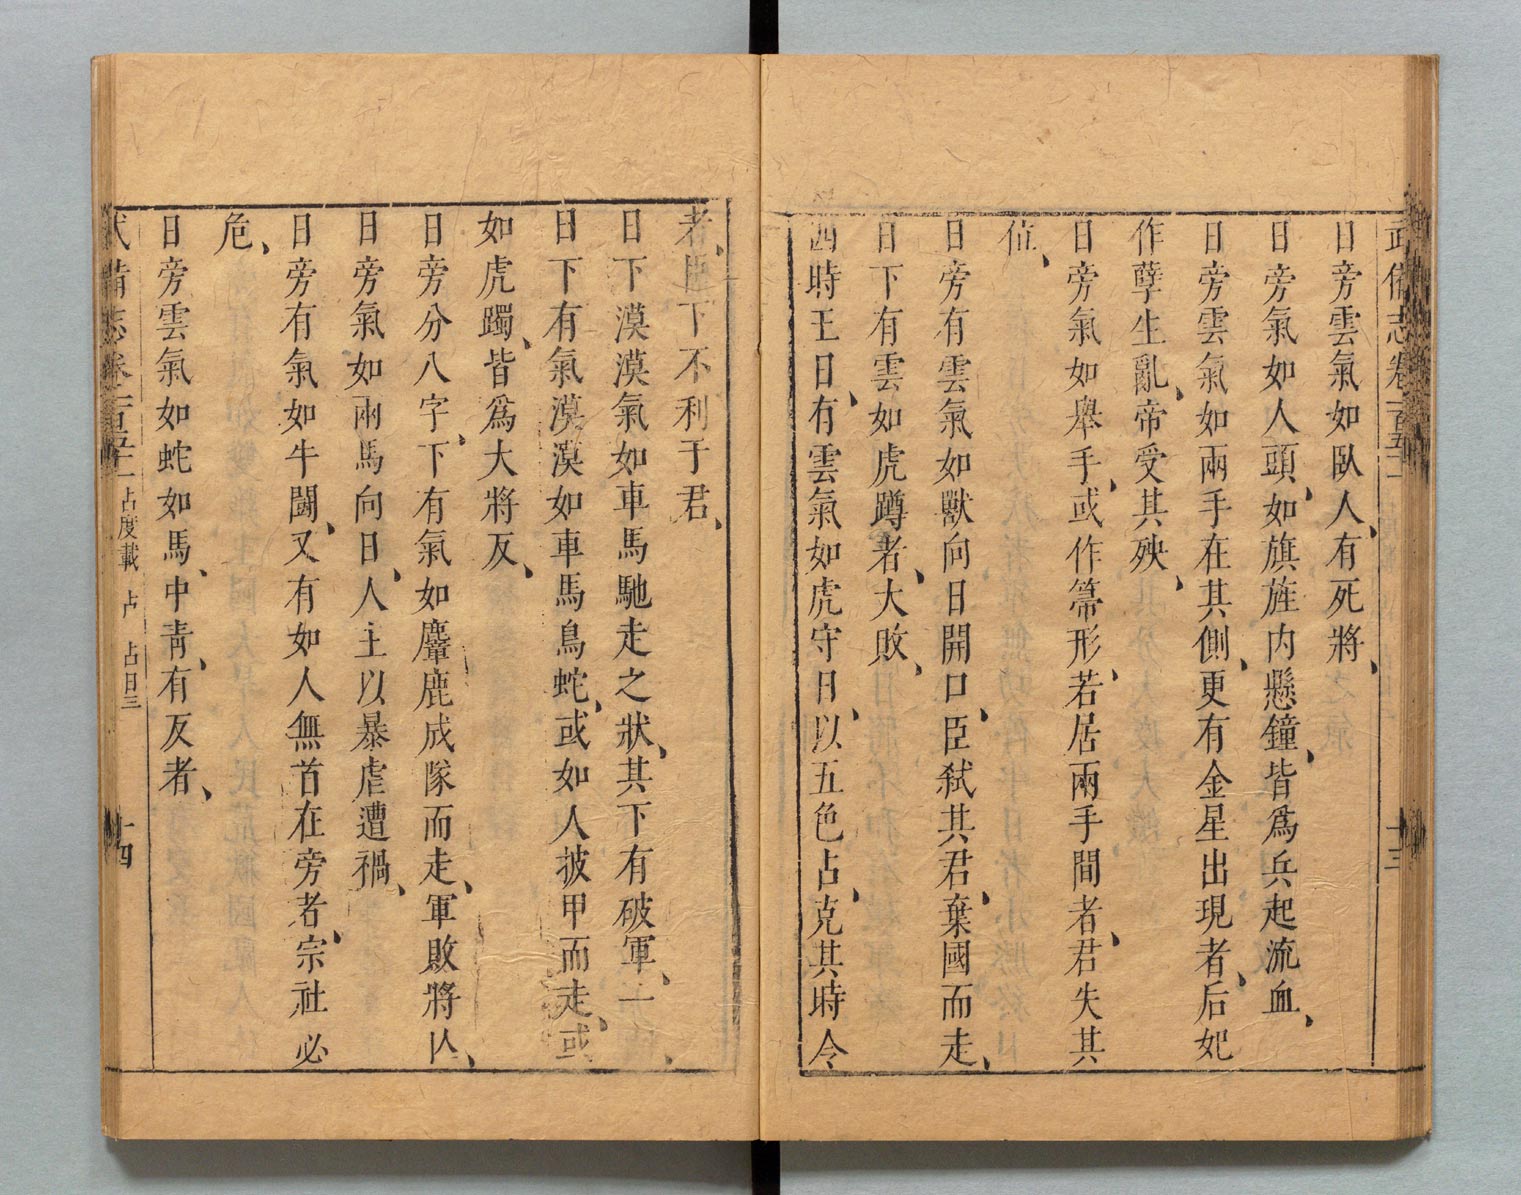 武備志卷一百五十一 十三
日旁雲氣如臥人、有死將、
日旁氣如人頭、如旗旌内懸鐘、皆爲兵起流血、
日旁雲氣如兩手在其側、更有金星出現者、后妃
作孽生亂、帝受其殃、
日旁氣如舉手、或作箒形、若居兩手間者、君失其
位、
日旁有雲氣如獸向日開口、臣弒其君、棄國而走、
日下有雲如虎蹲者、大敗、
四時王日、有雲氣如虎守日、以五色占、克其時令
者、臣下不利于君、
日下漠漠氣如車馬馳走之狀、其下有破軍、一
日下有氣漠漠如車馬鳥蛇、或如人披甲而走、或
如虎躅、皆爲大將反、
日旁分八字、下有氣如麞鹿成隊而走、軍敗將亾、
日旁氣如兩馬向日、人主以暴虐遭禍、
日旁有氣如牛鬪、又有如人無首在旁者、宗社必
危、
日旁雲氣如蛇如馬、中靑、有反者、
武備志卷一百五十一 占度載 占 占日三 十四